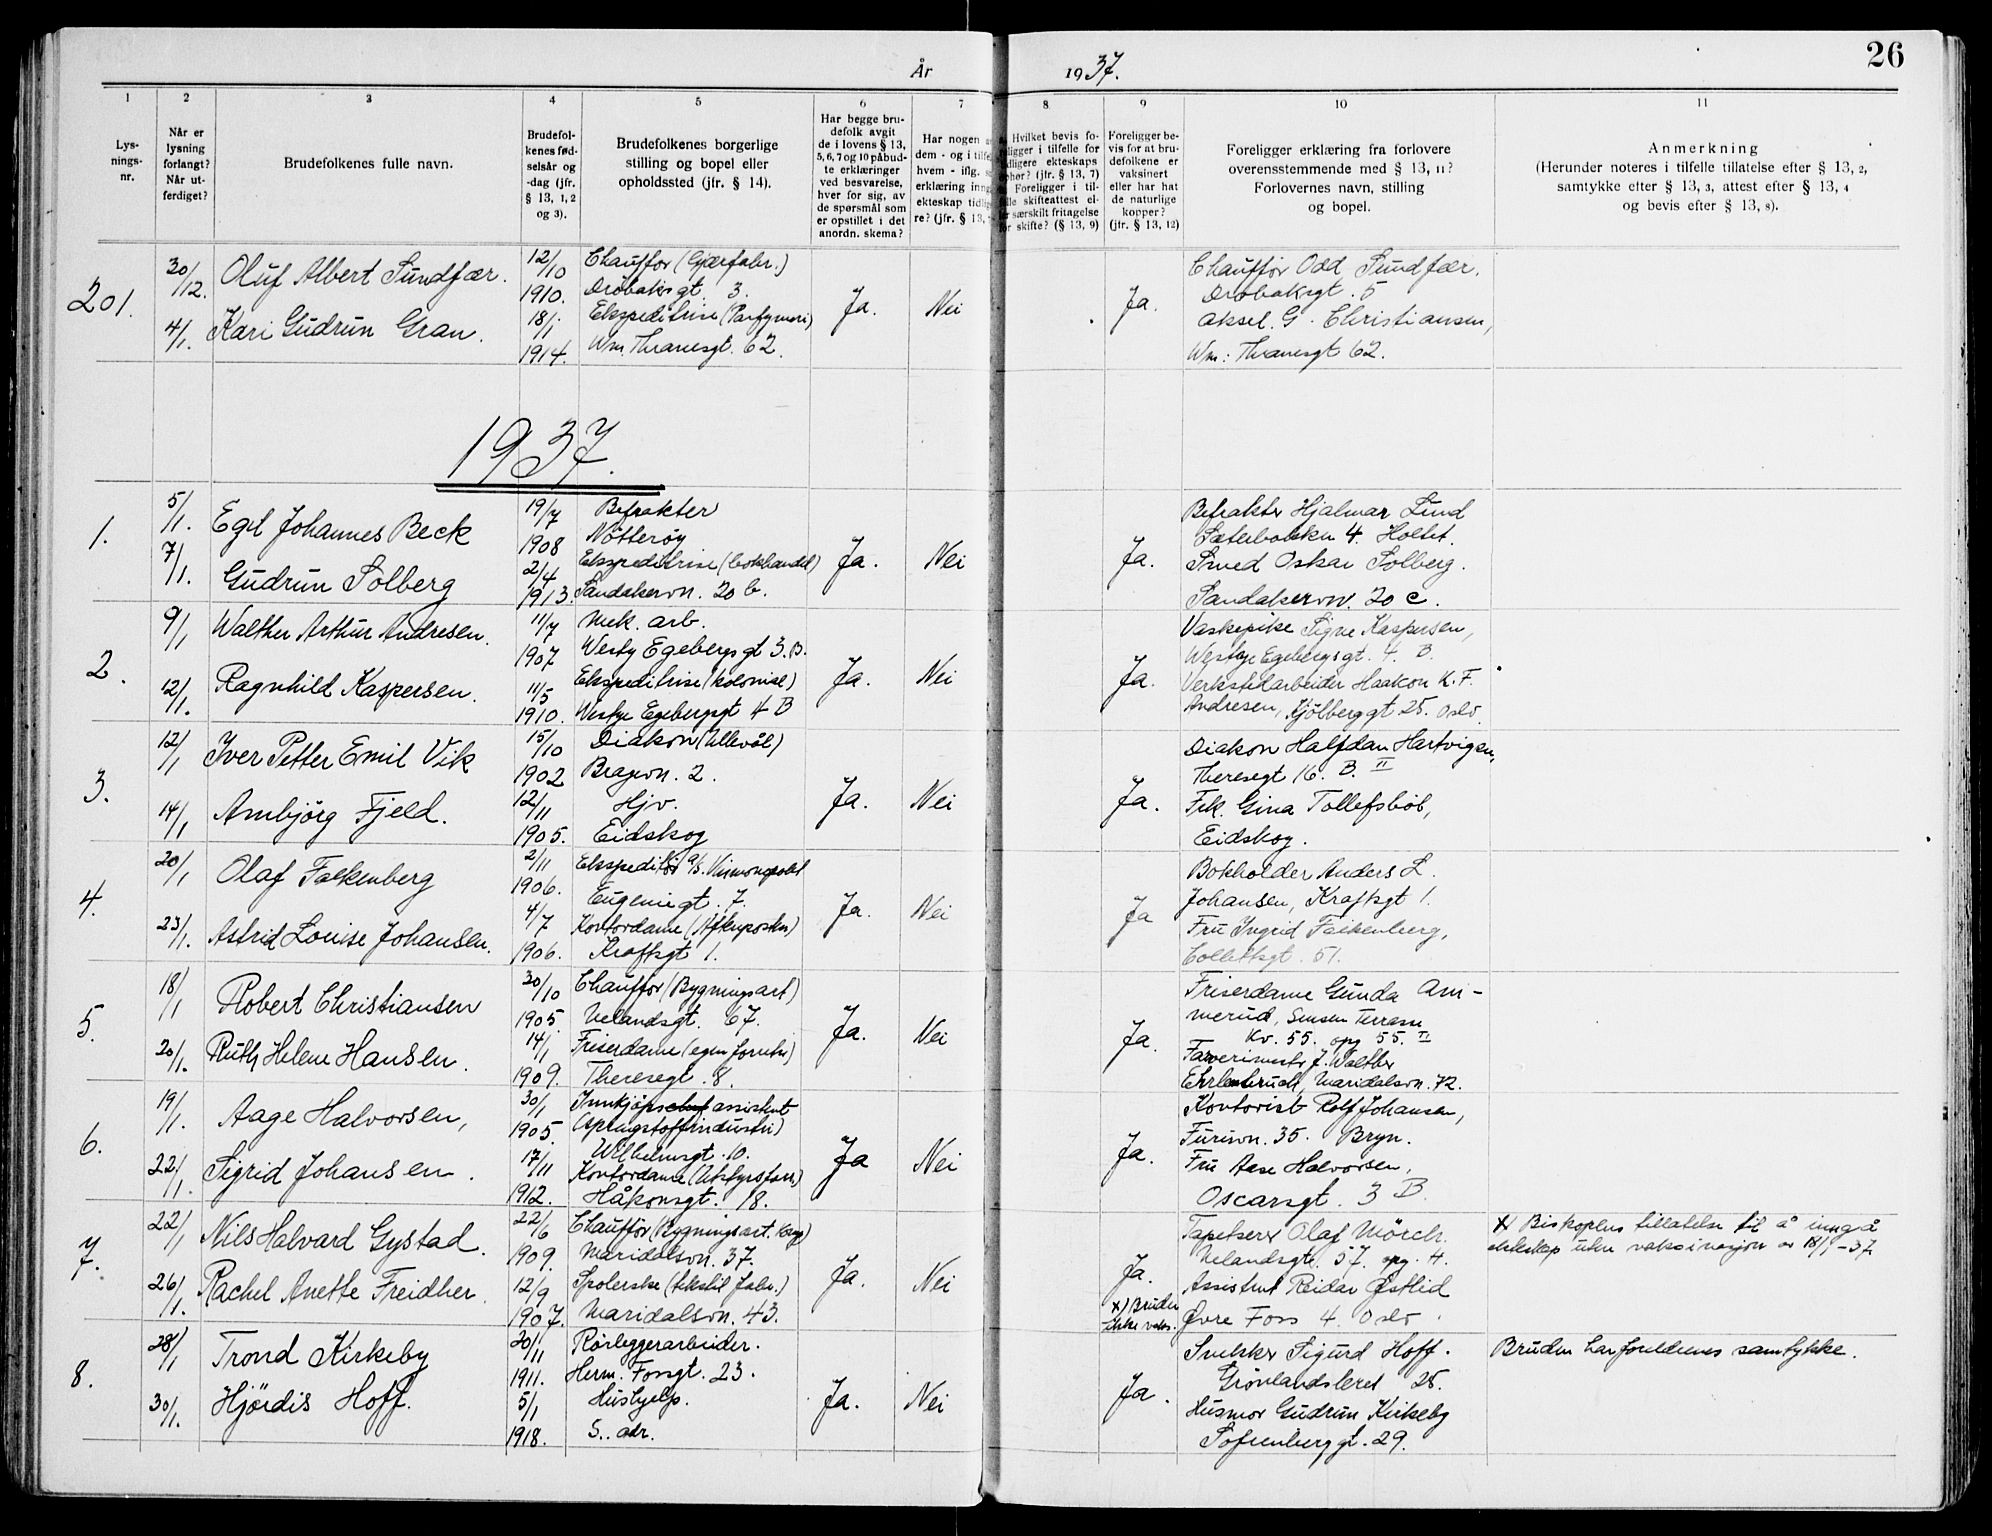 26
År 1937.
1 2 3 4 5 6 7 8 9 10 11
Lys-
nings-
nr.
Når er
lysning
forlangt?
Når ut-
ferdiget?
Brudefolkenes fulle navn.
Brudefol-
kenes fød-
selsår og
-dag (jfr.
§ 13, 1, 2
og 3).
Brudefolkenes borgerlige
stilling og bopel eller
opholdssted (jfr. § 14).
Har begge bru-
defolk avgit
de i lovens § 13,
5, 6, 7 og 10 påbud-
te erklæringer
ved besvarelse,
hver for sig, av
de spørsmål som
er opstillet i det
anordn. skema?
Har nogen a
dem - og i tilfe
hvem - iflg. s
erklæring inng
ekteskap tidlig
re? (jfr. § 13,
Hvilket bevis fo-
religger i tilfelle for
tidligere ekteskaps
ophør? (jfr. § 13, 7)
Foreligger i til-
felle skifteattest el-
ler særskilt fritagelse
for skifte? (§ 13, 9)
Foreligger be-
vis for at bru-
defolkene er
vaksinert
eller har hat
de naturlige
kopper?
(jfr. § 13, 12)
Foreligger erklæring fra forlovere
overensstemmende med § 13, 11?
Forlovernes navn, stilling
og bopel.
Anmerkning
(Herunder noteres i tilfelle tillatelse efter § 13, 2,
samtykke efter § 13, 3, attest efter § 13, 4
og bevis efter § 13, 8).
201.
30/12.
4/1.
Oluf Albert Sundfær.
Kari Gudrun Gran.
12/10
1910.
18/1
1914.
Chauffør (Gjærfabr.)
Drøbaksgt. 3.
Ekspeditrise (Parfymeri)
Wm. Thranesgt. 62.
Ja.
Nei
Ja.
Chauffør Odd Sundfær.
Drøbaksgt. 5
Aksel G. Christiansen,
Wm: Thranesgt 62.
1937.
1.
5/1.
7/1.
Egil Johannes Beck
Gudrun Solberg
19/7
1908
2/4
1913.
Befrakter
Nötteröy
Ekspeditrise (bokhandel)
Sandakervn. 20 b.
Ja.
Nei
Ja.
Befrakter Hjalmar Lund
Sæterbakken 4. Holtet.
Smed Oskar Solberg.
Sandakervn. 20 c.
2.
9/1
12/1.
Walther Arthur Andresen.
Ragnhild Kaspersen.
11/7
1907
11/5
1910.
Mek. arb.
Westy Egebergsgt 3.B.
Ekspeditrise (kolonial)
Westye Egebergsgt 4 B
Ja.
Nei
Ja.
Vaskepike Signe Kaspersen,
Westye Egebergsgt. 4. B.
Verkstedarbeider Haakon K. F.
Andresen, Kjölberggt 25. Oslo.
3.
12/1
14/1
Iver Petter Emil Vik
Arnbjörg Fjeld.
15/10
1902
12/11
1905.
Diakon (Ullevål)
Bragevn. 2.
Hjv.
Eidskog
Ja.
Nei
Ja.
Diakon Halfdan Hartvigsen,
Theresegt 16. B. II
Frk. Gina Tollefsböl,
Eidskog.
4.
20/1
23/1.
Olaf Falkenberg
Astrid Louise Johansen.
2/11
1906.
4/7
1906.
Ekspeditör a/s. Vinmonopolet
Eugeniegt. 7.
Kontordame (Aftenposten)
Kraftsgt 1.
Ja.
Nei
Ja
Bokholder Anders L.
Johansen, Kraftsgt 1.
Fru Ingrid Falkenberg,
Collettsgt. 51.
5.
18/1
20/1.
Robert Christiansen
Ruth Helene Hansen.
30/10
1905.
14/1
1909.
Chauffør (Bygningsart)
Uelandsgt. 67.
Friserdame (egen forretn.)
Theresegt. 8.
Ja.
Nei
Ja.
Friserdame Gunda Am-
merud, Sinsen Terrasse
Kv. 55. opg 55. II
Farverimester J. Walther
Ehrlenbruch, Maridalsvn. 72.
6.
19/1.
22/1.
Aage Halvorsen,
Sigrid Johansen.
30/1
1905.
17/11
1912.
Innkjøpschef assistent
(Springstoffindustri)
Wilhelmsgt. 10.
Kontordame (Utstyrsforr.)
Håkonsgt. 18.
Ja
Nei
Ja.
Kontorist Rolf Johansen,
Furuvn. 35. Bryn.
Fru Aase Halvorsen,
Oscarsgt. 3 B.
7.
22/1
26/1.
Nils Halvard Gystad.
Rachel Anette Freidher.
22/6
1909.
12/9
1907.
Chauffør (Bygningsart. forr.)
Maridalsvn. 37.
Spolerske (tekstil fabr.)
Maridalsvn. 43.
Ja.
Nei
Ja.
x) Bruden
ikke vaks.
Tapetserer Olaf Mörch.
Uelandsgt. 57. opg. 4.
Assistent Reidar Østlid
Øvre Foss 4. Oslo.
x) Biskopens tillatelse til å inngå
ekteskap uten vaksinasjon av 18/1-37
8.
28/1
30/1.
Trond Kirkeby
Hjördis Hoff.
20/11
1911.
5/1
1918.
Rörleggerarbeider.
Herm. Fossgt. 23.
Hushjelp.
S. adr.
Ja.
Nei
Ja.
Snekker Sigurd Hoff.
Grönlandsleret 25.
Husmor Gudrun Kirkeby
Sofienberggt. 29.
Bruden har foreldrenes samtykke.